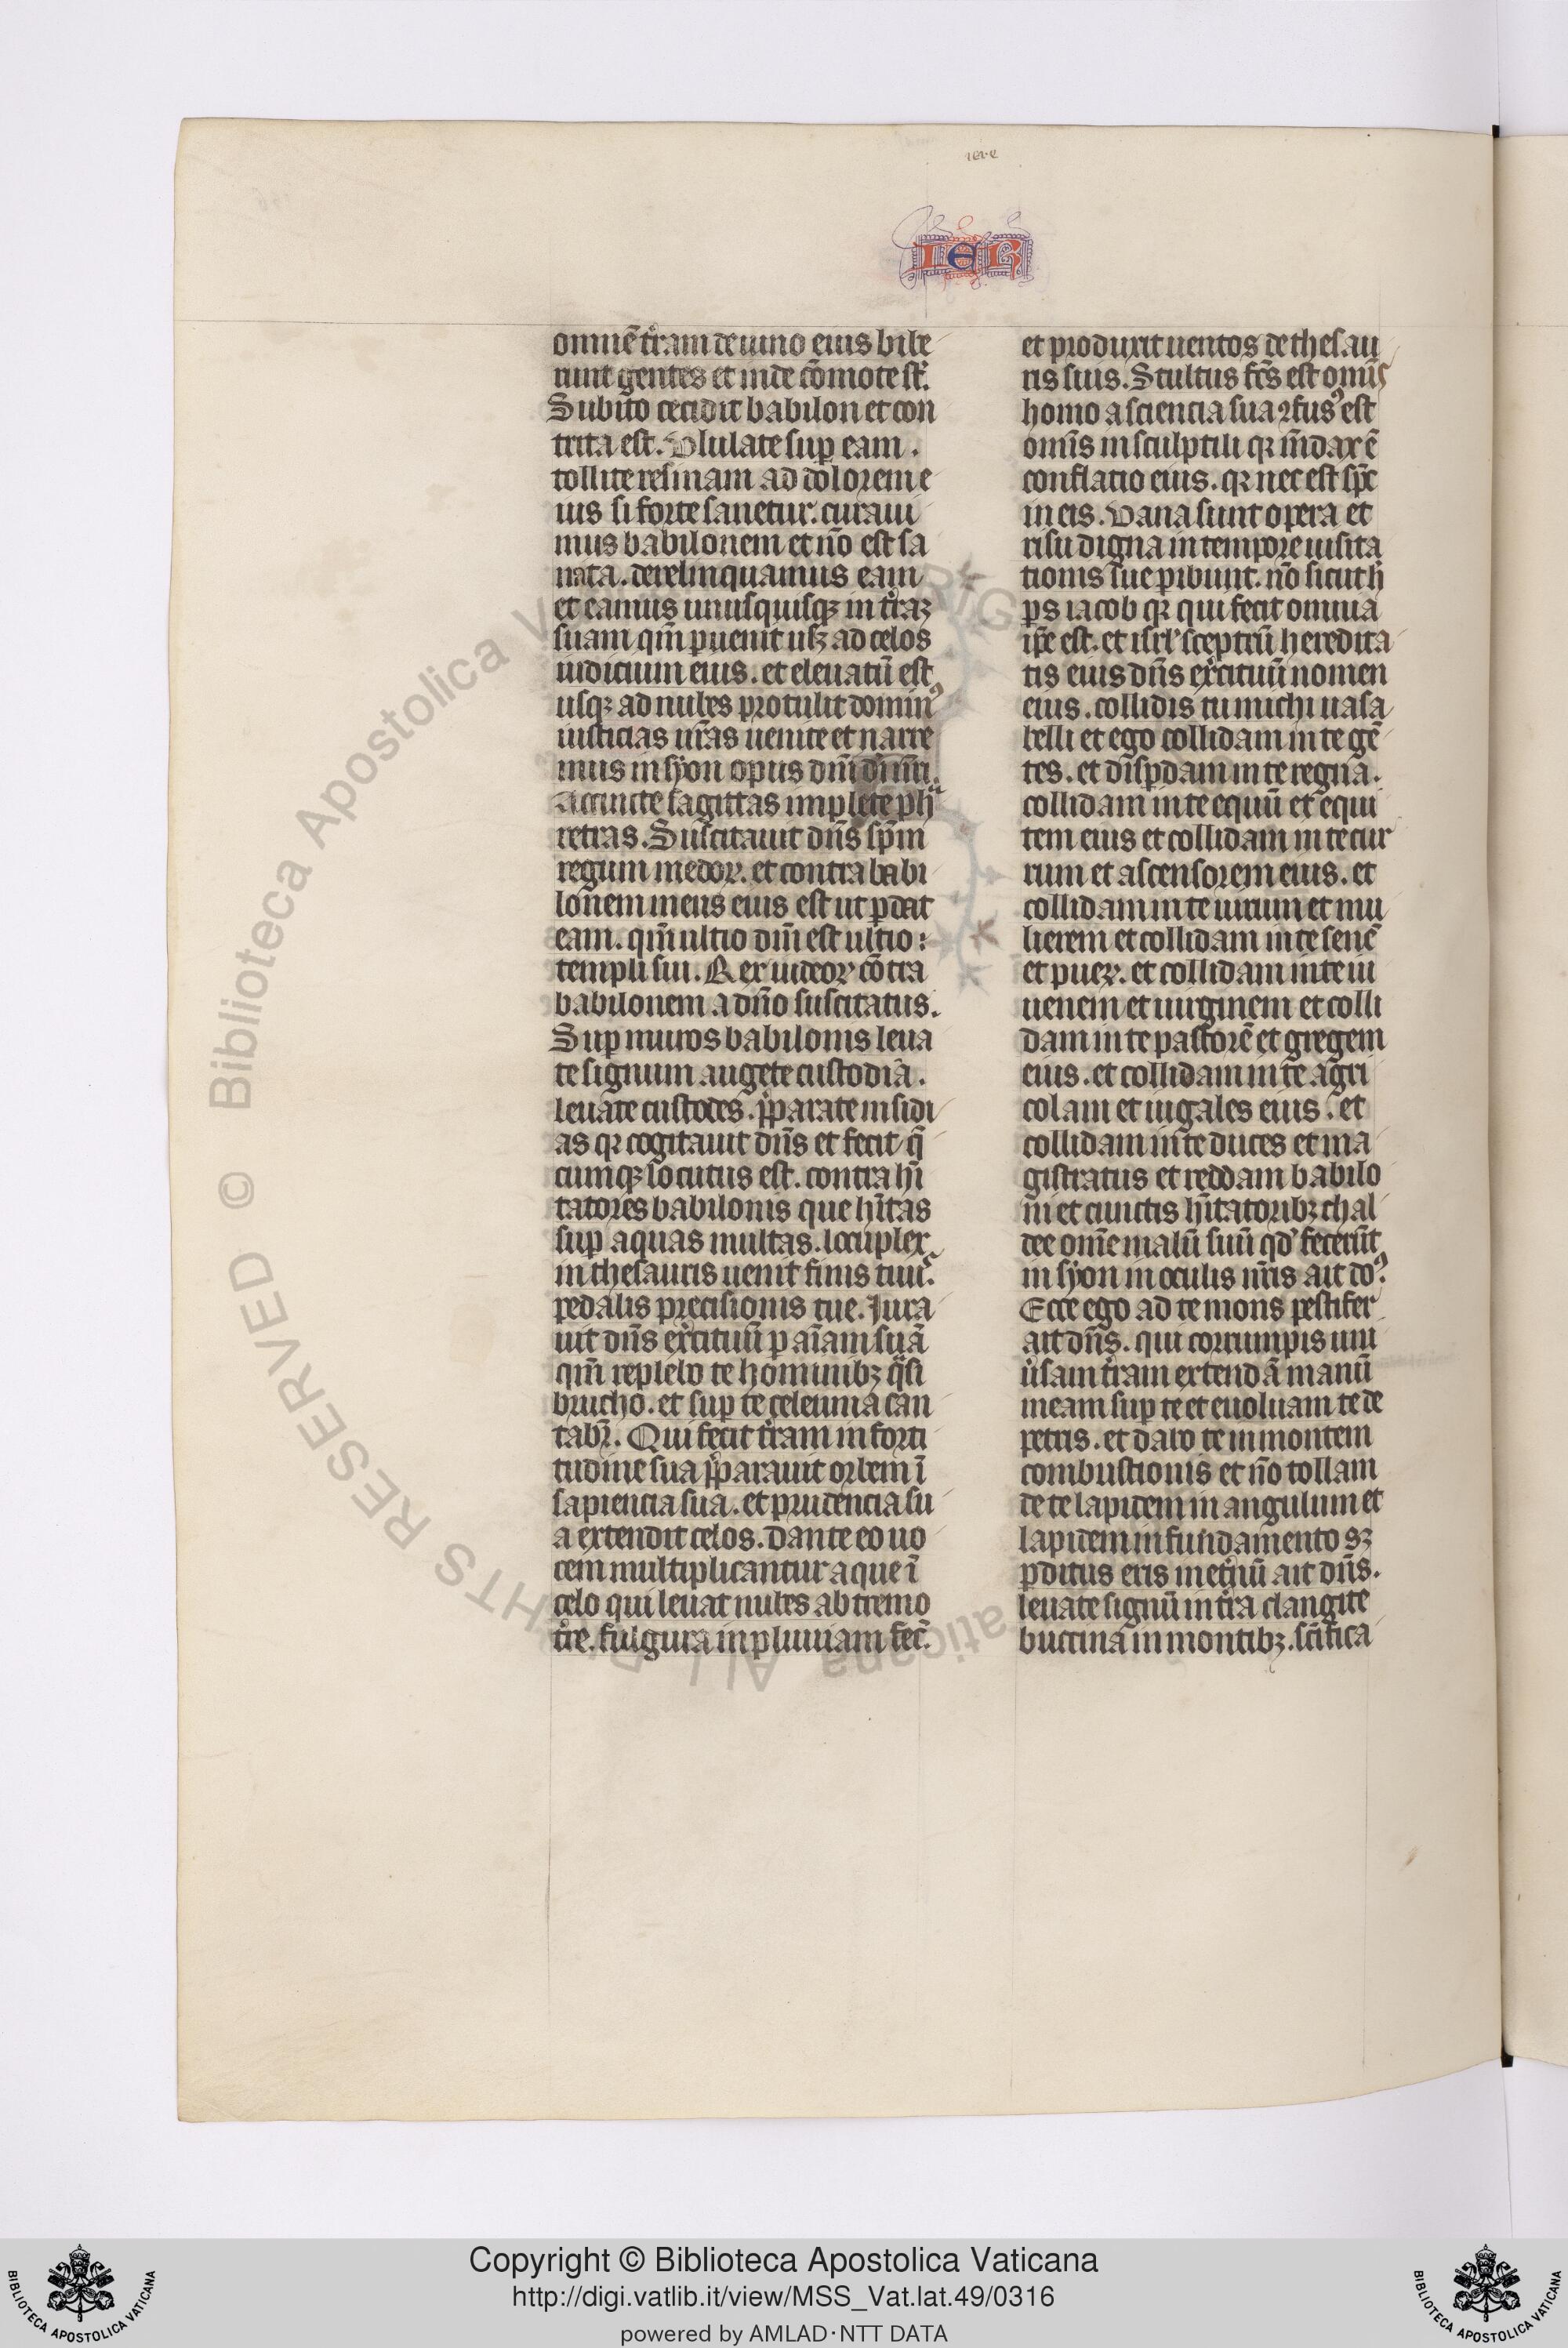 iere
IER
omnē t̉ram de uino eius bibe
runt gentes et inde cōmote sт̄.
Subito cecidit babilon et con
trita est. Ululate suꝑ eam.
tollite resinam ad dolorem e
ius si forte sanetur. curaui
mus babilonem et nō est sa
nata. derelinquamus eam
et eamus unusquisqꝫ in t̉raꝫ
suam qm̄ ꝑuenit usqꝫ ad celos
iudicium eius. et eleuatū est
usqꝫ ad nubes protulit dominꝰ
iusticias nr̄as uenite et narre
mus in syon opus dn̄i dei nr̄i.
Acuite sagittas implete pha
retras. Suscitauit dn̄s sp̄m
regum medoꝝ. et contra babi
lonem mens eius est ut ꝑdat
eam. qm̄ ultio dn̄i est ultio:
templi sui. Rex uideoꝝ cōtra
babilonem a dn̄o suscitatus.
Suꝑ muros babilonis leua
te signum augete custodiā.
leuate custodes. p̉parate insidi
as qꝛ cogitauit dn̄s et fecit q̄
cumqꝫ locutus est. contra hi̅
tatores babilonis que hi̅tas
suꝑ aquas multas. locuplex
in thesauris uenit finis tuuˢ.
pedalis precisionis tue. Iura
uit dn̄s ex̉cituū ꝑ aīam suā
qm̄ replebo te hominibꝫ qͣsi
brucho. et suꝑ te celeuma can
tabr̄. Qui fecit t̉ram in forti
tudine sua p̉parauit orbem ī
sapiencia sua. et prudencia su
a extendit celos. Dante eo uo
cem multiplicantur aque ī
celo qui leuat nubes ab tremo
t̉re. fulgura in pluuiam fec̄.
et produxit uentos de thesau
ris suis. Stultus fc̄s est omīs
homo a sciencia sua ꝯfusꝰ est
omīs in sculptili qꝛ m̄dax ē
conflatio eius. qꝛ nec est sp̄c
in eis. Uana sunt opera et
risu digna in tempore uisita
tionis sue ꝑibunt. nō sicut h̉
ps iacob qꝛ qui fecit omnia
ip̄e est. et isrl' sceptrū heredita
tis eius dn̄s ex̉cituū nomen
eius. collidis tu michi uasa
belli et ego collidam in te gē
tes. et disꝑdam in te regna.
collidam in te equū et equi
tem eius et collidam in te cur
rum et ascensorem eius. et
collidam in te uirum et mu
lierem et collidam in te senē
et pueꝝ. et collidam in te iu
uenem et uirginem et colli
dam in te pastorē et gregem
eius. et collidam in te agri
colam et iugales eius. et
collidam in te duces et ma
gistratus et reddam babilo
ni et cunctis hi̅tatoribꝫ chal
dee om̄e malū suū qd' fecerūt
in syon in oculis nr̄is ait doꝰ.
Ecce ego ad te mons pestifer
ait dn̄s. qui corrumpis uni
ūsam t̉ram extendā manū
meam suꝑ te et euoluam te de
petris. et dabo te in montem
combustionis et nō tollam
de te lapidem in angulum et
lapidem in fundamento sꝫ
ꝑditus eris in et̉nū ait dn̄s.
leuate signū in t̉ra clangite
buccina in montibꝫ. sc̄ifica
© Biblioteca Apostolica Vaticana ALL RIGHTS RESERVED
Copyright © Biblioteca Apostolica Vaticana
http://digi.vatlib.it/view/MSS_Vat.lat.49/0316
powered by AMLAD·NTT DATA
BIBLIOTECA APOSTOLICA VATICANA
BIBLIOTECA APOSTOLICA VATICANA